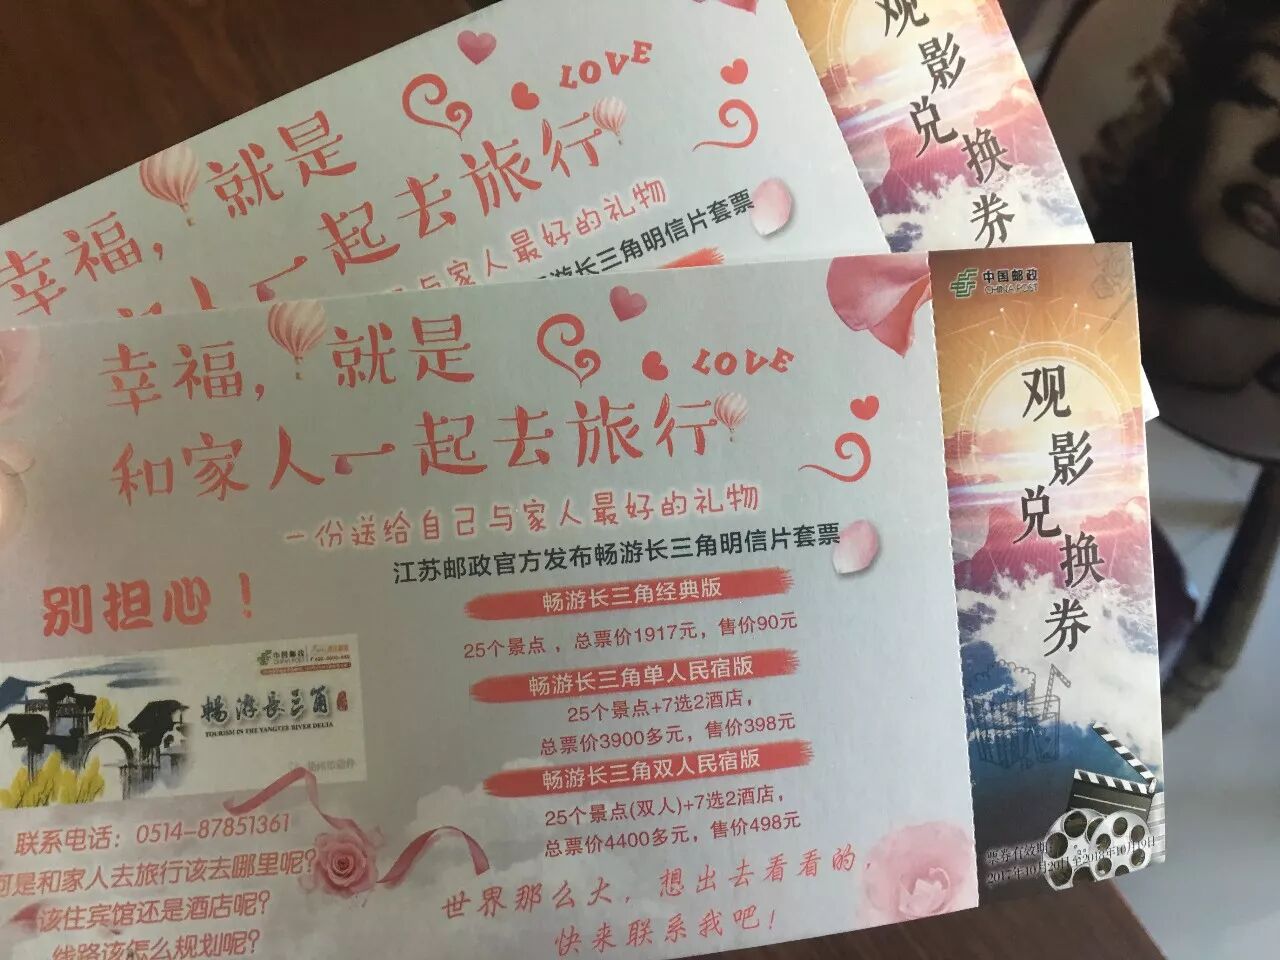 观影兑换券
LOVE
幸福，就是
一起去旅行
与家人最好的礼物
游长三角明信片套票
中国邮政
CHINA POST
观影兑换券
幸福，就是
LOVE
和家人一起去旅行
一份送给自己与家人最好的礼物
江苏邮政官方发布畅游长三角明信片套票
别担心！
畅游长三角经典版
25个景点，总票价1917元，售价90元
畅游长三角单人民宿版
25个景点+7选2酒店，
总票价3900多元，售价398元
畅游长三角双人民宿版
25个景点(双人)+7选2酒店，
总票价4400多元，售价498元
中国邮政
CHINA POST
畅游长三角
TOURISM IN THE YANGTZE RIVER DELTA
联系电话：0514-87851361
可是和家人去旅行该去哪里呢？
该住宾馆还是酒店呢？
线路该怎么规划呢？
世界那么大，想出去看看的，
快来联系我吧！
票券有效期：
2017年10月20日至2018年10月19日